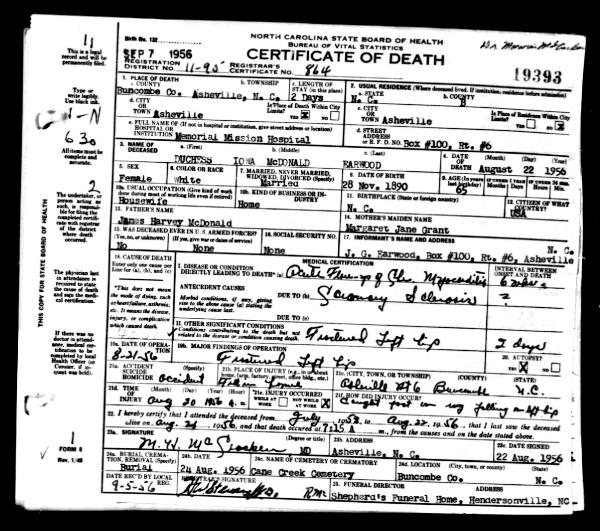 NORTH CAROLINA STATE BOARD OF HEALTH
BUREAU OF VITAL STATISTICS
CERTIFICATE OF DEATH
Birth No. 132
SEP 7 1956
REGISTRATION DISTRICT NO. 11-95 REGISTRAR'S CERTIFICATE NO. 864
19393
11
This is a legal record and will be permanently filed.
Type or write legibly. Use black ink.
N
630
All items must be complete and accurate.
2
The undertaker, or person acting as such, is responsible for filing the completed certificate with registrar of the district where death occurred.
The physician last in attendance is required to state cause of death and sign the medical certification.
If there was no doctor in attendance, medical certification to be completed by local Health Officer (or Coroner, if inquest was held).
THIS COPY FOR STATE BOARD OF HEALTH
1
FORM 8
Rev. 1/49
1. PLACE OF DEATH
a. COUNTY Buncombe Co.
b. TOWNSHIP Asheville, N. C.
c. LENGTH OF STAY (in this place) 2 Days
d. CITY OR TOWN Asheville
Is Place of Death Within City Limits? YES X NO
e. FULL NAME OF HOSPITAL OR INSTITUTION (If not in hospital or institution, give street address or location)
Memorial Mission Hospital
2. USUAL RESIDENCE (Where deceased lived. If institution, residence before admission)
a. STATE N. C.
b. COUNTY B
c. CITY OR TOWN Asheville
Is Place of Residence Within City Limits? YES NO
d. STREET ADDRESS OR R. F. D. NO. Box #100, Rt. #6
3. NAME OF DECEASED
a. (First) b. (Middle) c. (Last)
DUCHESS IONA McDONALD EARWOOD
4. DATE OF DEATH (Month) (Day) (Year)
August 22 1956
5. SEX Female
6. COLOR OR RACE White
7. MARRIED, NEVER MARRIED, WIDOWED, DIVORCED (Specify) Married
8. DATE OF BIRTH 28 Nov. 1890
9. AGE (In years last birthday) 65
10a. USUAL OCCUPATION (Give kind of work done during most of working life even if retired) Housewife
10b. KIND OF BUSINESS OR INDUSTRY Home
11. BIRTHPLACE (State or foreign country) N. C.
12. CITIZEN OF WHAT COUNTRY? USA
13. FATHER'S NAME James Harvey McDonald
14. MOTHER'S MAIDEN NAME Margaret Jane Grant
15. WAS DECEASED EVER IN U. S. ARMED FORCES?
(Yes, no, or unknown) (If yes, give war or dates of service)
No None
16. SOCIAL SECURITY NO. None
17. INFORMANT'S NAME AND ADDRESS
J. G. Earwood, Box #100, Rt. #6, Asheville N. C.
18. CAUSE OF DEATH
Enter only one cause per line for (a), (b), and (c)
*This does not mean the mode of dying, such as heart failure, asthenia, etc. It means the disease, injury, or complication which caused death.
MEDICAL CERTIFICATION
I. DISEASE OR CONDITION DIRECTLY LEADING TO DEATH* (a)
INTERVAL BETWEEN ONSET AND DEATH
ANTECEDENT CAUSES
Morbid conditions, if any, giving rise to the above cause (a) stating the underlying cause last.
DUE TO (b) Coronary Sclerosis
DUE TO (c)
II. OTHER SIGNIFICANT CONDITIONS
Conditions contributing to the death but not related to the disease or condition causing death.
Fractured Left hip 2 days
19a. DATE OF OPERATION 8-21-56
19b. MAJOR FINDINGS OF OPERATION Fractured Left hip
20. AUTOPSY? YES NO
21a. ACCIDENT SUICIDE HOMICIDE (Specify) accident
21b. PLACE OF INJURY (e.g., in or about home, farm, factory, street, office bldg., etc.)
21c. (CITY, TOWN, OR TOWNSHIP) (COUNTY) (STATE)
Asheville Rt 6 Buncombe N.C.
21d. TIME OF INJURY (Month) (Day) (Year) (Hour)
Aug 20 1956
21e. INJURY OCCURRED WHILE AT WORK NOT WHILE AT WORK
21f. HOW DID INJURY OCCUR?
Caught foot in rug falling on left hip
22. I hereby certify that I attended the deceased from July, 1953, to Aug. 22, 1956, that I last saw the deceased alive on Aug 21, 1956, and that death occurred at 7:15 A m., from the causes and on the date stated above.
23a. SIGNATURE (Degree or title) MD
23b. ADDRESS Asheville, N. C.
23c. DATE SIGNED 22 Aug. 1956
24a. BURIAL, CREMATION, REMOVAL (Specify) Burial
24b. DATE 24 Aug. 1956
24c. NAME OF CEMETERY OR CREMATORY Cane Creek Cemetery
24d. LOCATION (City, town, or county) (State)
Buncombe Co. N. C.
DATE REC'D BY LOCAL REG. 9-5-56
REGISTRAR'S SIGNATURE
25. FUNERAL DIRECTOR ADDRESS
Shepherd's Funeral Home, Hendersonville, NC